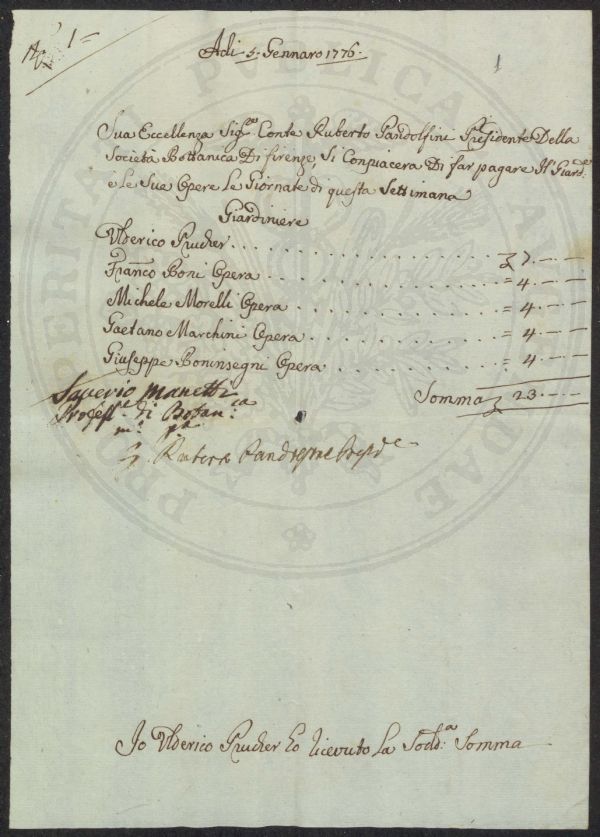 N.º 1=
1
Adi 5. Gennaro 1776.
Sua Eccellenza Sig.re Conte Ruberto Pandolfini Presidente Della
Società Bottanica Di firenze, Si Conpiacera Di far pagare Il Giard.e
e le Sue Opere Le Giornate di questa Settimana
Giardiniere
Ulderico Prucher . . . . . . . . . . . . £ 7. — —
Franco Boni Opera . . . . . . . . . . = 4. — —
Michele Morelli Opera . . . . . . . . = 4. — —
Gaetano Marchini Opera . . . . . . . = 4. — —
Giuseppe Boninsegni Opera . . . . . . = 4. — —
Somma £ 23. — —
Saverio Manetti
Profess.e di Botan.ca
m.o p.a
Ruberto Pandolfini Presd.e
Io Ulderico Prucher Ho ricevuto La Sod.a Somma
PROSPERITATI PUBLICAE AUGENDAE